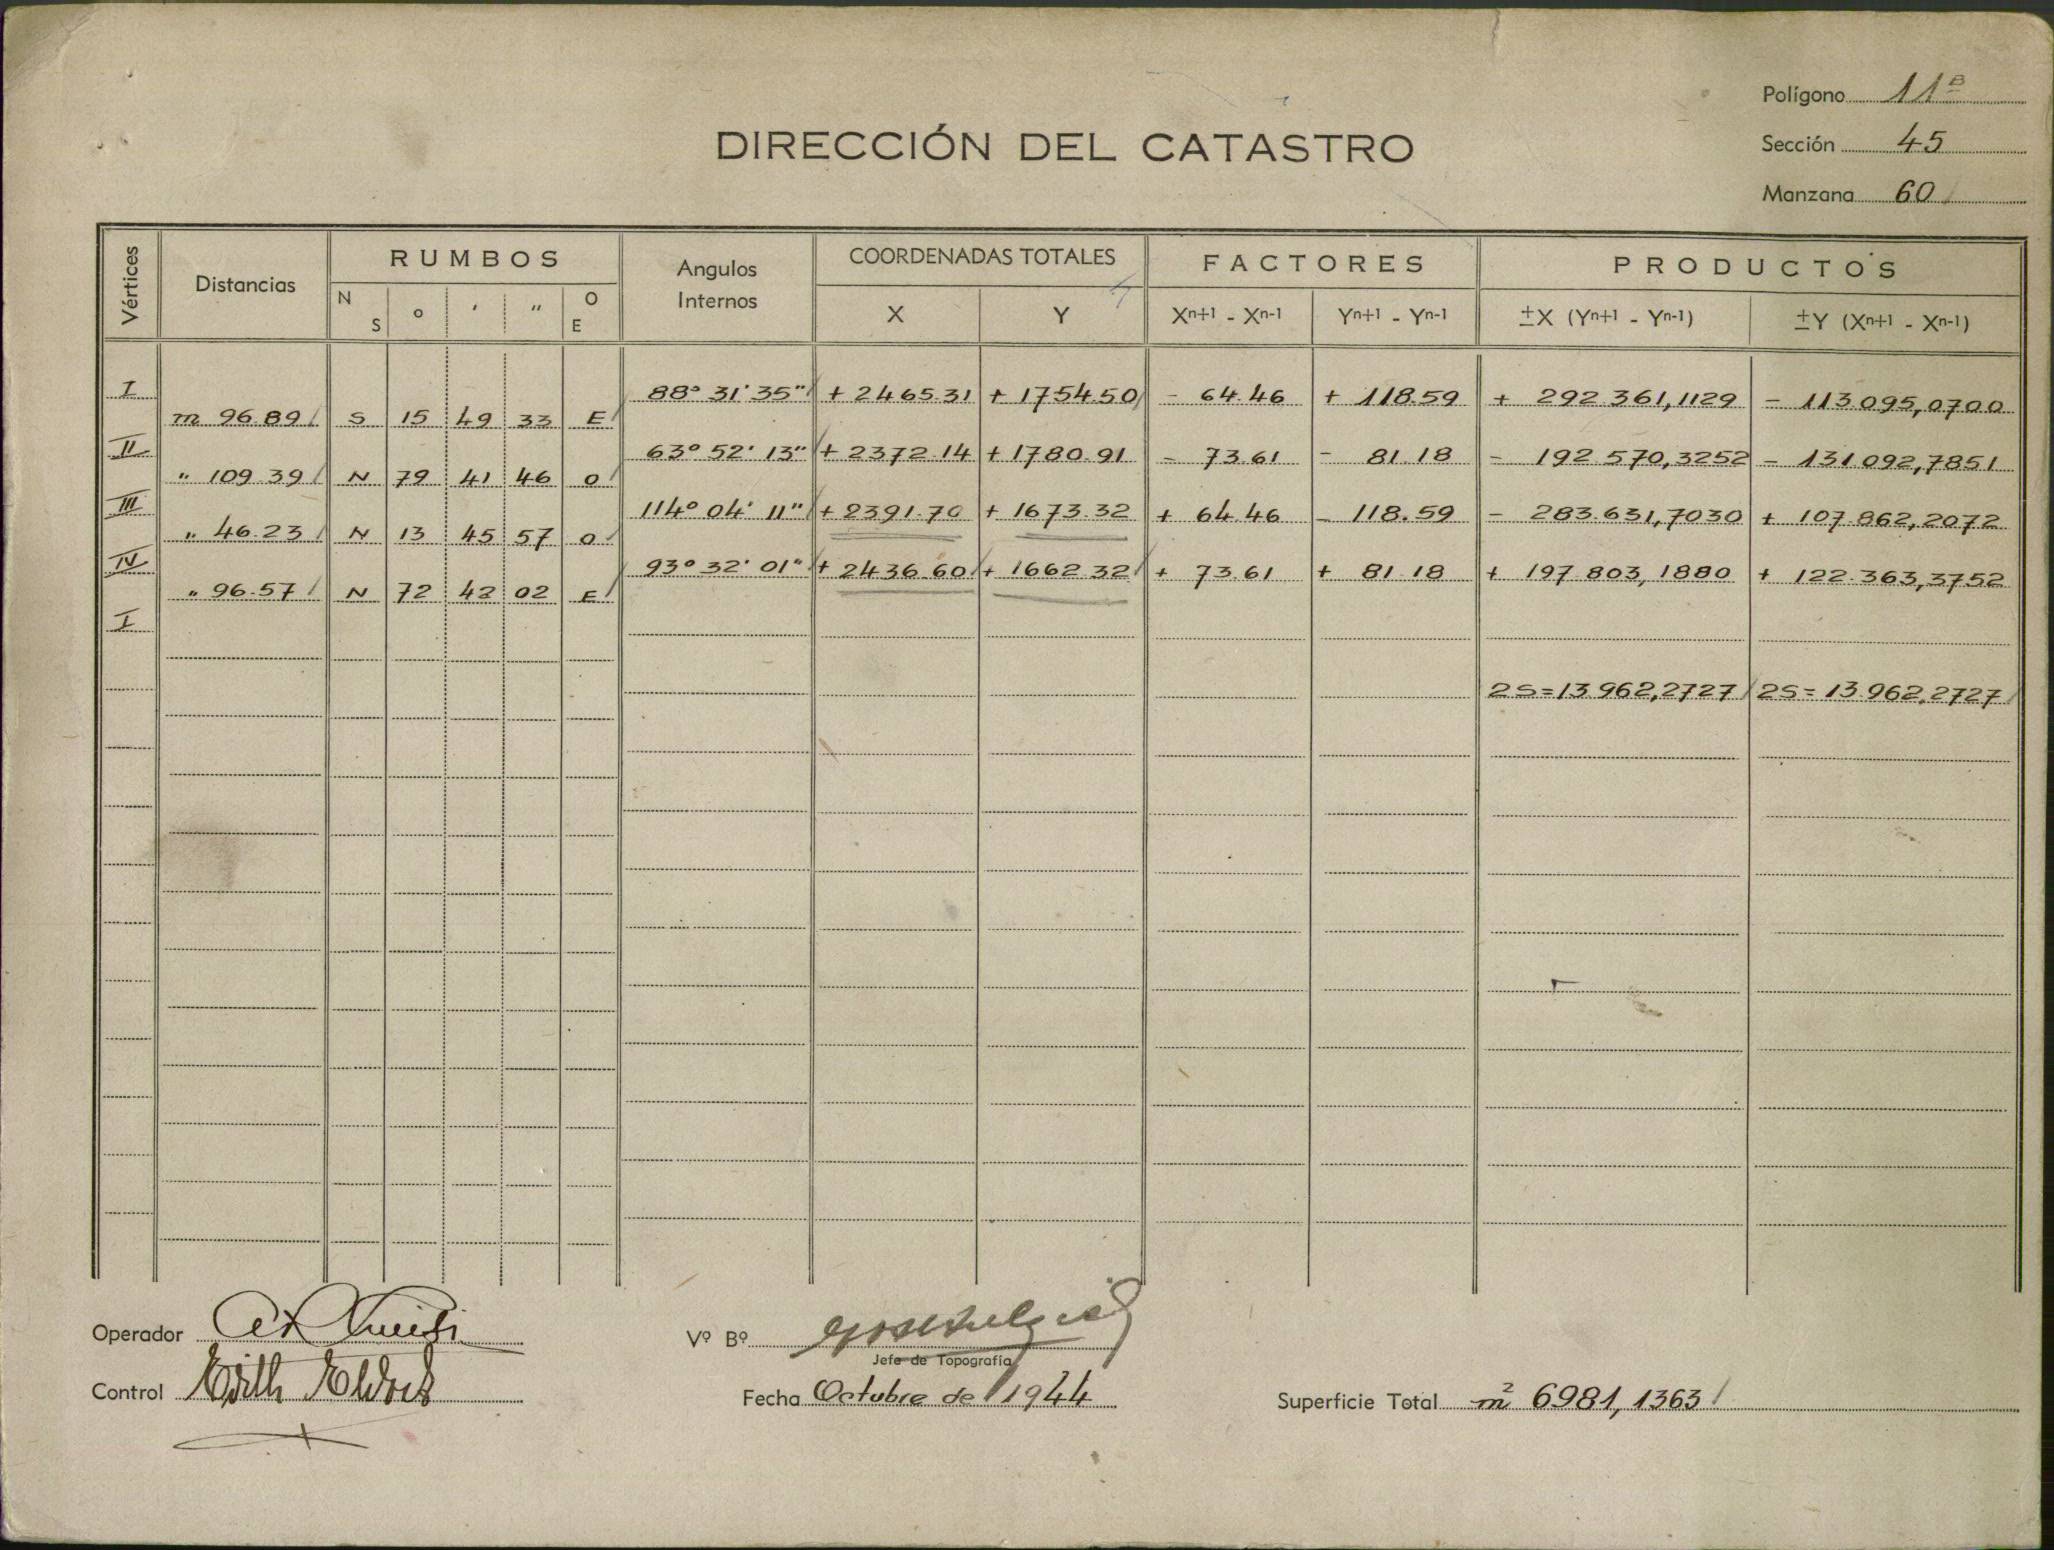 Polígono 11ᴮ
DIRECCIÓN DEL CATASTRO
Sección 45
Manzana 60
Vértices Distancias RUMBOS Angulos Internos COORDENADAS TOTALES FACTORES PRODUCTOS
N S ° ′ ″ O E X Y Xⁿ⁺¹ - Xⁿ⁻¹ Yⁿ⁺¹ - Yⁿ⁻¹ ±X (Yⁿ⁺¹ - Yⁿ⁻¹) ±Y (Xⁿ⁺¹ - Xⁿ⁻¹)
I 88° 31' 35" + 2465.31 + 1754.50 - 64.46 + 118.59 + 292 361,1129 - 113.095,0700
m 96.89 S 15 49 33 E
II 63° 52' 13" + 2372.14 + 1780.91 - 73.61 - 81.18 - 192 570,3252 - 131.092,7851
" 109.39 N 79 41 46 O
III 114° 04' 11" + 2391.70 + 1673.32 + 64.46 - 118.59 - 283.631,7030 + 107.862,2072
" 46.23 N 13 45 57 O
IV 93° 32' 01" + 2436.60 + 1662.32 + 73.61 + 81.18 + 197 803,1880 + 122.363,3752
" 96.57 N 72 42 02 E
I
2S=13.962,2727 2S=13.962,2727
Operador
Vº Bº
Jefe de Topografía
Control Edith
Fecha Octubre de 1944
Superficie Total m² 6981,1363